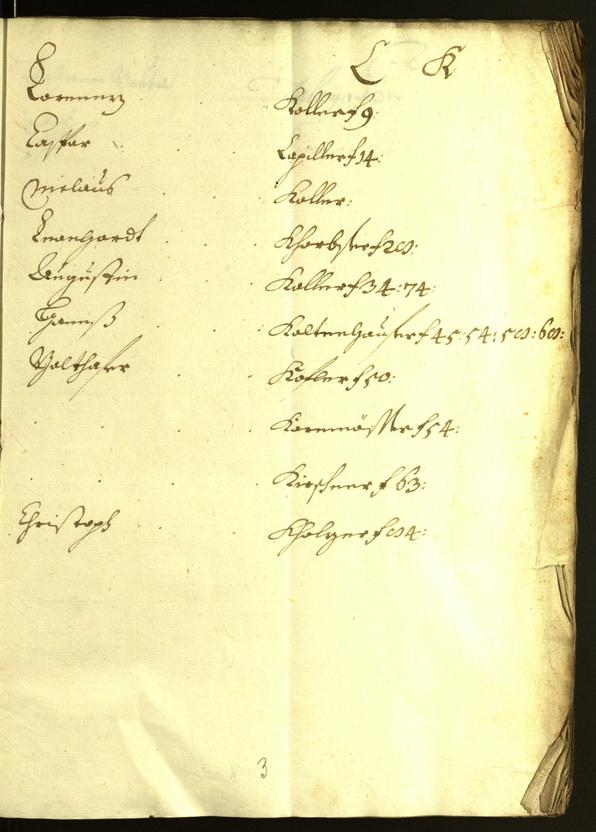 C K
Lorenntz Koller f 9:
Caspar Capiller f 14:
Niclaus Koller:
Leonhardt Khorbster f 28:
Augustin Koller f 34: 74:
Hannß Koltenhauser f 45: 54: 58: 68:
Balthaser Kofler f 50:
Kornmösser f 54:
Kirschner f 63:
Christoph Kholger f 84:
3